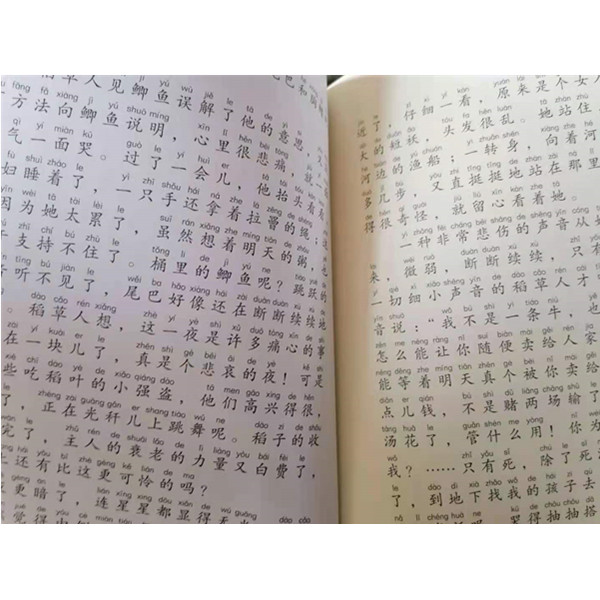 稻草人见鲫鱼误解了他的意思，又
方法向鲫鱼说明，心里很悲痛，就一
气一面哭。过了一会儿，他抬头看看，
妇睡着了，一只手还拿着拉罾的绳；
因为她太累了，虽然想着明天的粥，也
支持不住了。桶里的鲫鱼呢？跳跃的
听不见了，尾巴好像还在断断续续地
稻草人想，这一夜是许多痛心的事
在一块儿了，真是个悲哀的夜！可是
些吃稻叶的小强盗，他们高兴得很，
了，正在光秆儿上跳舞呢。稻子的收
完了，主人的衰老的力量又白费了，
还有比这更可怜的吗？
更暗了，连星星都显得无
近了，仔细一看，原来是个女人
大的短袄，头发很乱。她站住
河边的渔船；一转身，向着河
多几步，又直挺挺地站在那里
得很奇怪，就留心看着她。
一种非常悲伤的声音从她
来，微弱，断断续续，只有
一切细小声音的稻草人才
音说：“我不是一条牛，也
怎么能让你随便卖给人家
能等着明天真个被你卖给
点儿钱，不是赌两场输了
汤花了，管什么用！你为
我？……只有死，除了死
了，到地下找我的孩子去
哭得抽抽搭